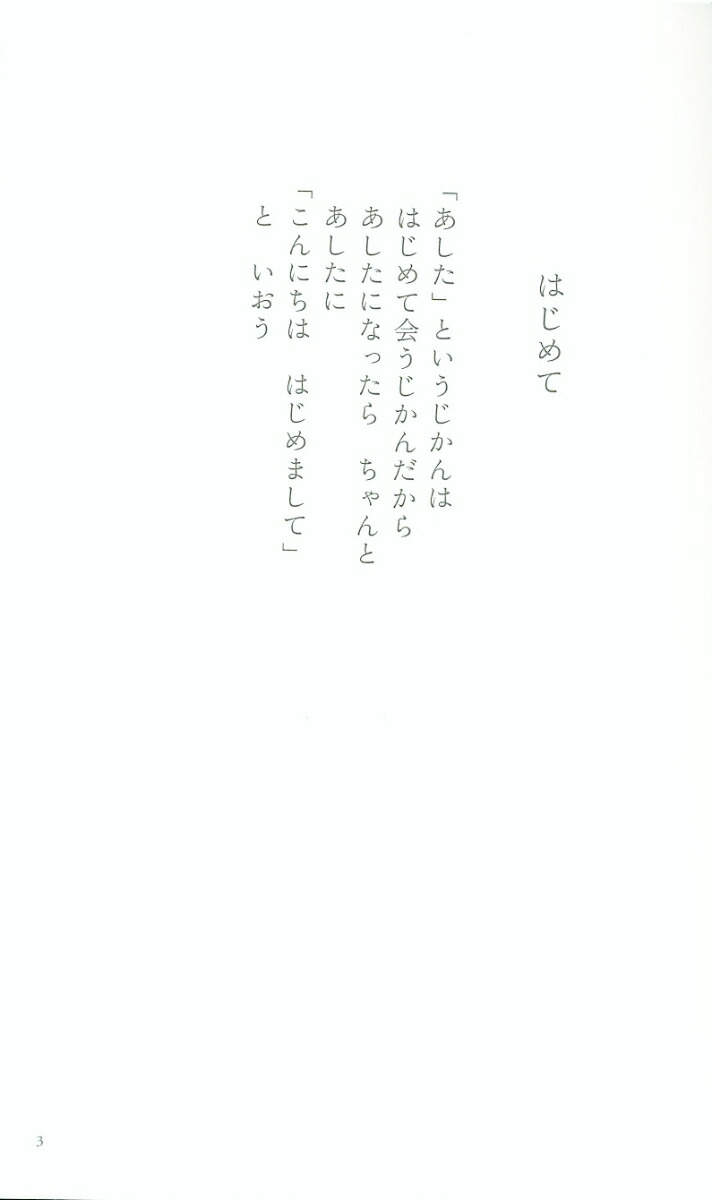 はじめて
「あした」というじかんは
はじめて会うじかんだから
あしたになったら　ちゃんと
あしたに
「こんにちは　はじめまして」
と　いおう
3